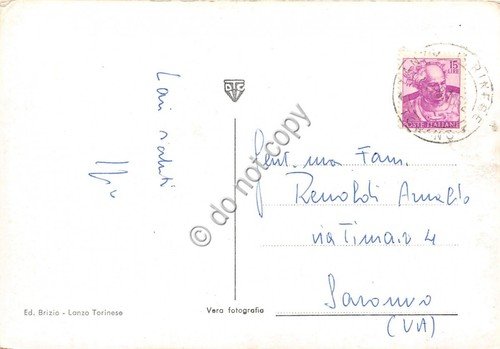 Cari saluti
15
LIRE
POSTE ITALIANE
Gent.ma Fam.
Renoldi Arnaldo
via Timavo 4
Saronno
(VA)
Ed. Brizio - Lanzo Torinese
Vera fotografia
© do not copy